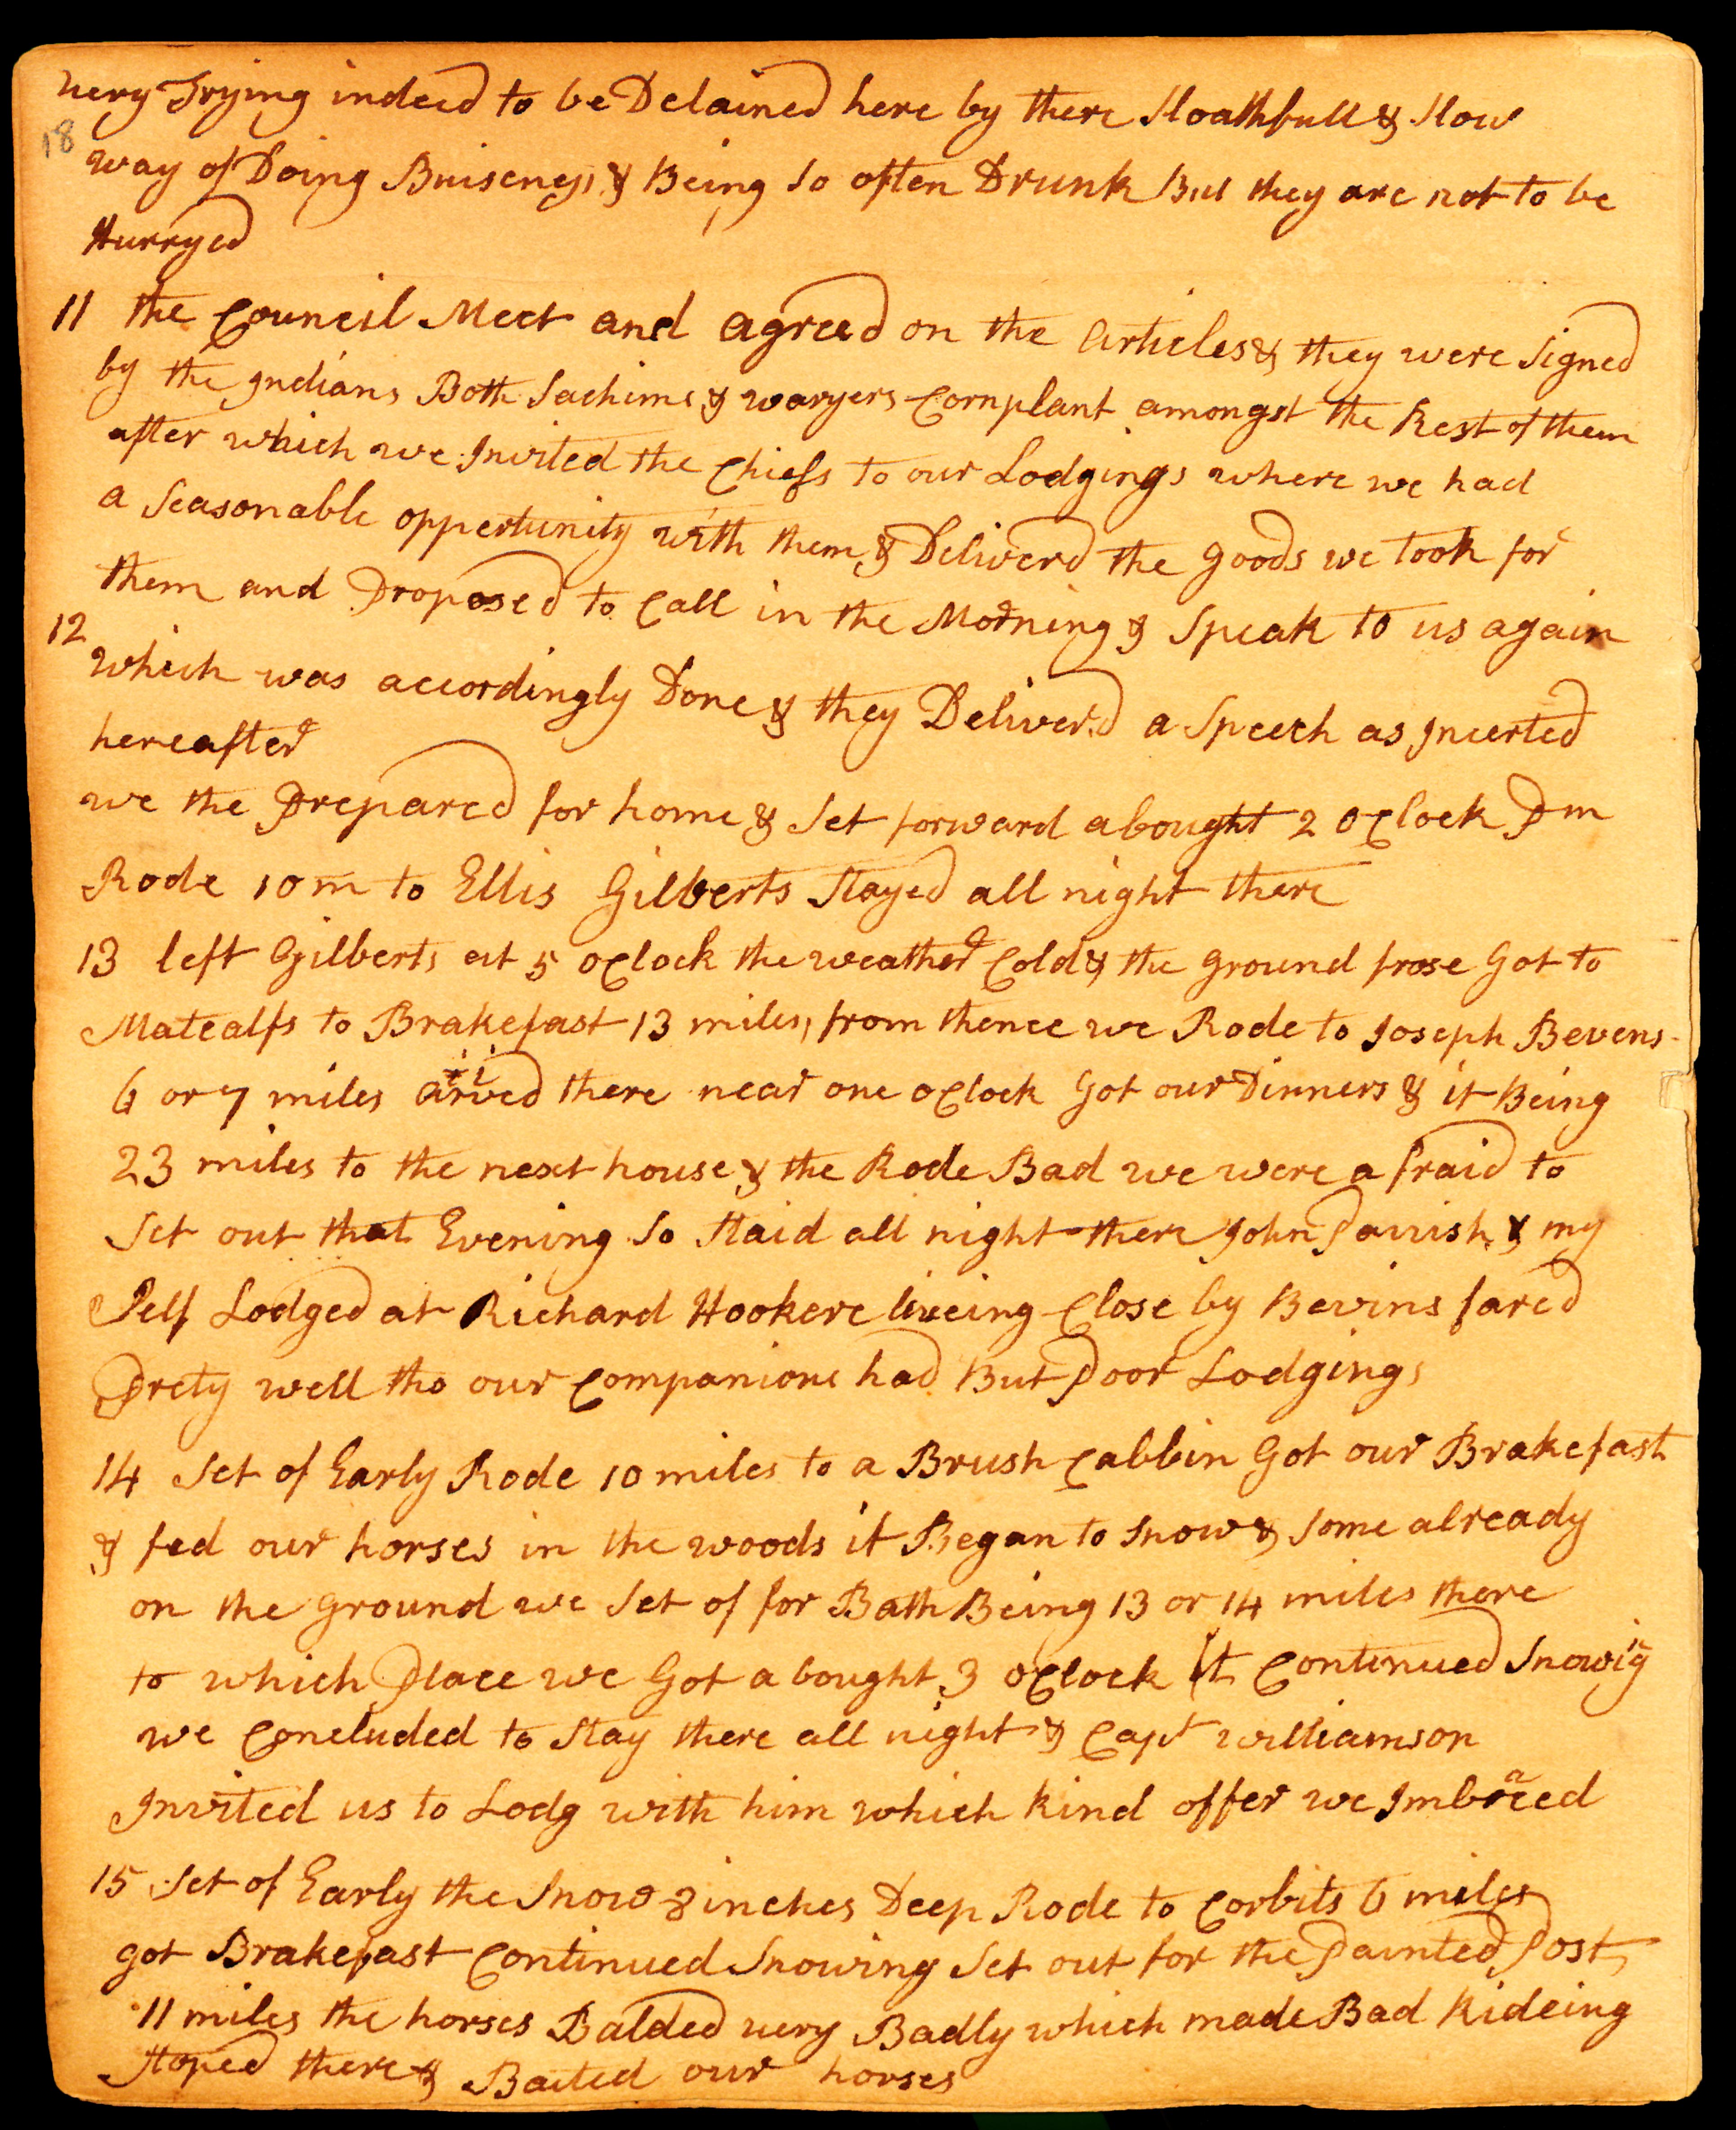 very Trying indeed to be Delained here by there Sloathfull & Slow
18
way of Doing Buiseness & Being So often Drunk But they are not to be
Hurryed
11 the Council Meet and agreed on the Articles & they were Signed
by the Indians Both Sachims & waryers Cornplant amongst the Rest of them
after which we Invited the Chiefs to our Lodgings where we had
a Seasonable oppertunity with them & Deliverd the goods we took for
them and Proposed to Call in the Morning & Speak to us again
12
which was accordingly Done & they Deliver'd a Speech as Incerted
hereafter
we the Prepared for home & Set forward abought 2 oClock Pm
Rode 10 m to Ellis Gilberts Stayed all night there
13 left Gilberts at 5 oClock the weather Cold & the ground frose Got to
Matcalfs to Brakefast 13 miles, from thence we Rode to Joseph Bevens
6 or 7 miles arived there near one oClock Got our Dinners & it Being
23 miles to the next house & the Rode Bad we were afraid to
Set out that Evening So Staid all night there John Parrish & my
Self Lodged at Richard Hookere liveing Close by Bevins fared
Prety well tho our Companions had But Poor Lodgings
14 Set of Early Rode 10 miles to a Brush Cabbin Got our Brakefast
& fed our horses in the woods it Began to Snow & Some already
on the ground we Set of for Bath Being 13 or 14 miles there
to which Place we Got abought 3 oClock It Continued Snowig
we Concluded to Stay there all night & Capt Williamson
Invited us to Lodg with him which kind offer we Imbraced
15 Set of Early the Snow 8 inches Deep Rode to Corbits 6 miles
got Brakefast Continued Snowing Set out for the Painted Post
11 miles the horses Balded very Badly which made Bad Rideing
Stoped there & Baited our horses